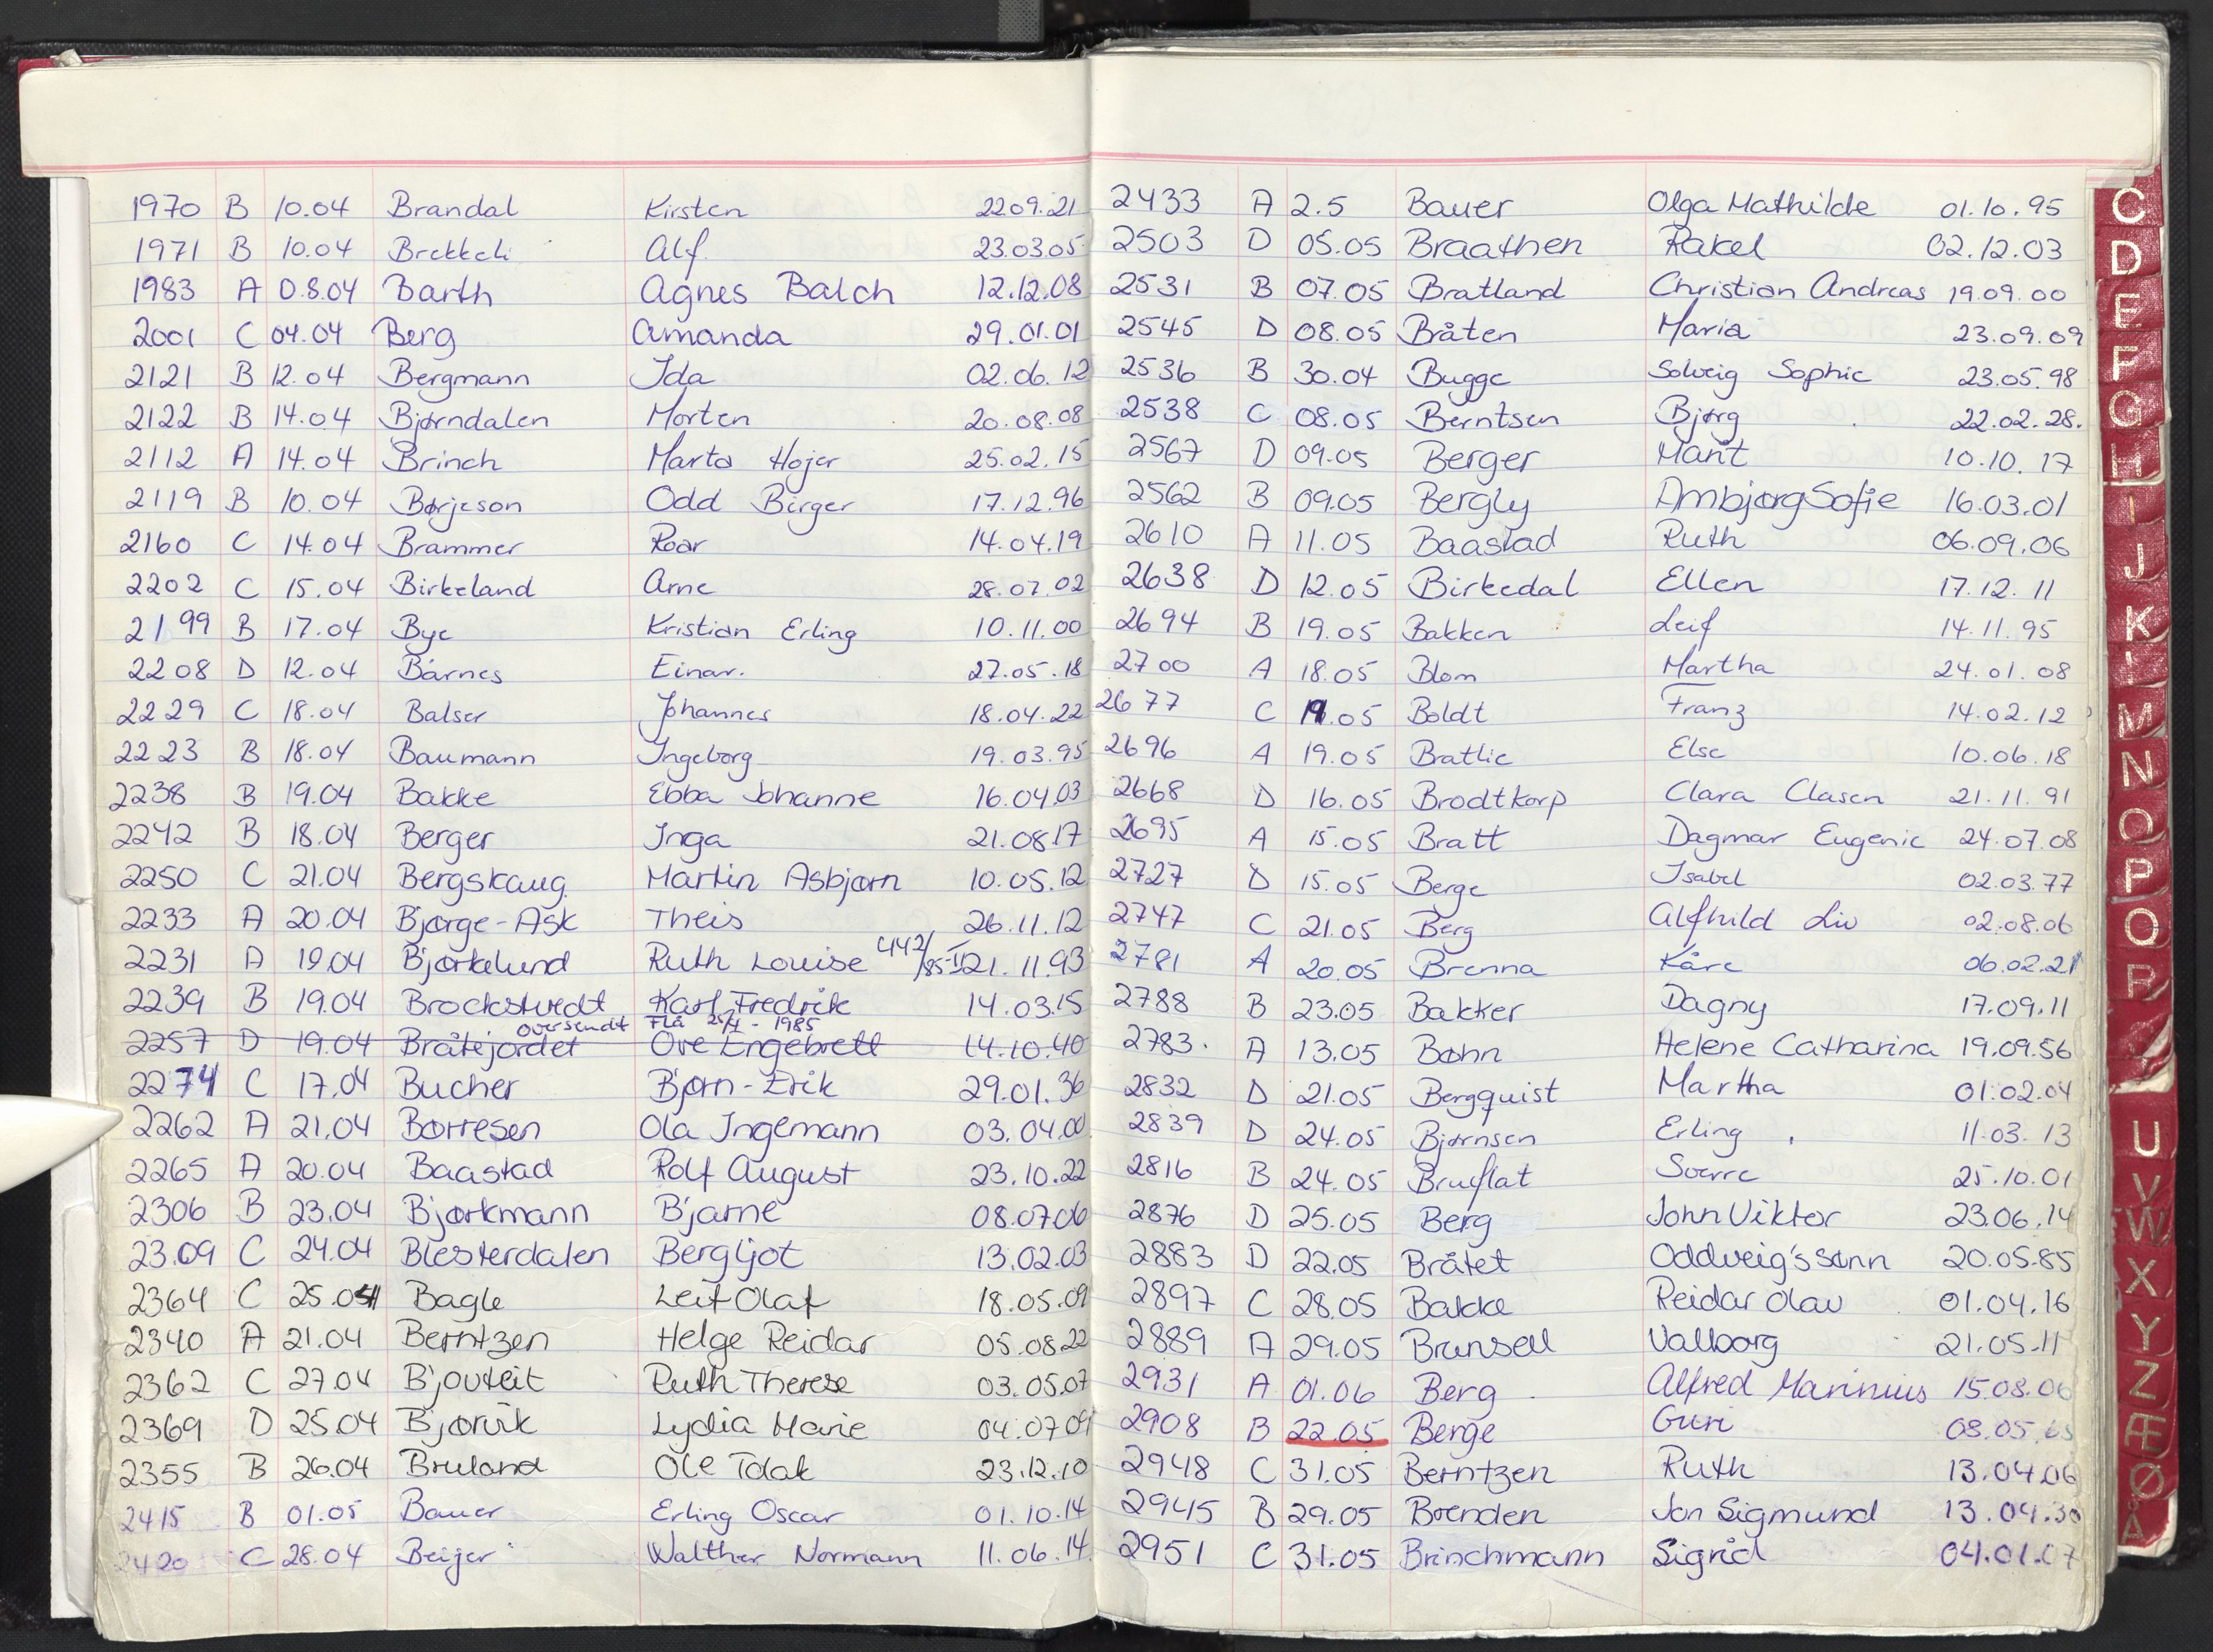 1970 B 10.04 Brandal Kirsten 22.09.21
1971 B 10.04 Brekkeli Alf 23.03.05
1983 A 08.04 Barth Agnes Balch 12.12.08
2001 C 04.04 Berg Amanda 29.01.01
2121 B 12.04 Bergmann Ida 02.06.12
2122 B 14.04 Bjørndalen Morten 20.08.08
2112 A 14.04 Brinch Marta Højer 25.02.15
2119 B 10.04 Børjeson Odd Birger 17.12.96
2160 C 14.04 Brammer Roar 14.04.19
2202 C 15.04 Birkeland Arne 28.07.02
2199 B 17.04 Bye Kristian Erling 10.11.00
2208 D 12.04 Bårnes Einar. 27.05.18
2229 C 18.04 Balser Johannes 18.04.22
2223 B 18.04 Baumann Ingeborg 19.03.95
2238 B 19.04 Bakke Ebba Johanne 16.04.03
2242 B 18.04 Berger Inga 21.08.17
2250 C 21.04 Bergskaug Martin Asbjørn 10.05.12
2233 A 20.04 Bjørge-Ask Theis 26.11.12
2231 A 19.04 Bjørkelund Ruth Louise 442/85-II 21.11.93
2239 B 19.04 Brockstredt Karl Fredrik 14.03.15
oversendt Flå 25/1 - 1985
2257 D 19.04 Bråtejordet Ove Engebrett 14.10.40
2274 C 17.04 Bucher Bjørn-Erik 29.01.36
2262 A 21.04 Børresen Ola Ingemann 03.04.00
2265 A 20.04 Baastad Rolf August 23.10.22
2306 B 23.04 Bjørkmann Bjarne 08.07.06
2309 C 24.04 Blesterdalen Bergljot 13.02.03
2364 C 25.04 Bagle Leif Olaf 18.05.09
2340 A 21.04 Berntzen Helge Reidar 05.08.22
2362 C 27.04 Bjouteit Ruth Therese 03.05.07
2369 D 25.04 Bjørvik Lydia Marie 04.07.09
2355 B 26.04 Bruland Ole Tdak 23.12.10
2415 B 01.05 Bauer Erling Oscar 01.10.14
2420 C 28.04 Beijer Walther Normann 11.06.14
2433 A 2.5 Bauer Olga Mathilde 01.10.95
2503 D 05.05 Braathen Rakel 02.12.03
2531 B 07.05 Bratland Christian Andreas 19.09.00
2545 D 08.05 Bråten Maria 23.09.09
2536 B 30.04 Bugge Solveig Sophie 23.05.98
2538 C 08.05 Berntsen Bjørg 22.02.28.
2567 D 09.05 Berger Marit 10.10.17
2562 B 09.05 Bergly Ambjørg Sofie 16.03.01
2610 A 11.05 Baastad Ruth 06.09.06
2638 D 12.05 Birkedal Ellen 17.12.11
2694 B 19.05 Bakken Leif 14.11.95
2700 A 18.05 Blom Martha 24.01.08
2677 C 19.05 Boldt Franz 14.02.12
2696 A 19.05 Bratlie Else 10.06.18
2668 D 16.05 Brodtkorp Clara Clasen 21.11.91
2695 A 15.05 Bratt Dagmar Eugenie 24.07.08
2727 D 15.05 Berge Isabel 02.03.77
2747 C 21.05 Berg Alfhild Liv 02.08.06
2781 A 20.05 Brenna Kåre 06.02.21
2788 B 23.05 Bakker Dagny 17.09.11
2783. A 13.05 Bøhn Helene Catharina 19.09.56
2832 D 21.05 Bergquist Martha 01.02.04
2839 D 24.05 Bjørnsen Erling 11.03.13
2816 B 24.05 Bruflat Sverre 25.10.01
2876 D 25.05 Berg John Viktor 23.06.14
2883 D 22.05 Bråtet Oddveig's sønn 20.05.85
2897 C 28.05 Bakke Reidar Olav 01.04.16
2889 A 29.05 Brunsell Valborg 21.05.11
2931 A 01.06 Berg Alfred Marinius 15.08.06
2908 B 22.05 Berge Guri 08.05
2948 C 31.05 Berntzen Ruth 13.04.06
2945 B 29.05 Brenden Jon Sigmund 13.04.30
2951 C 31.05 Brinchmann Sigrid 04.01.07
C
D
E
F
G
H
I
J
K
M
N
O
P
Q
R
U
V
W
X
Y
Z
Æ
Ø
Å